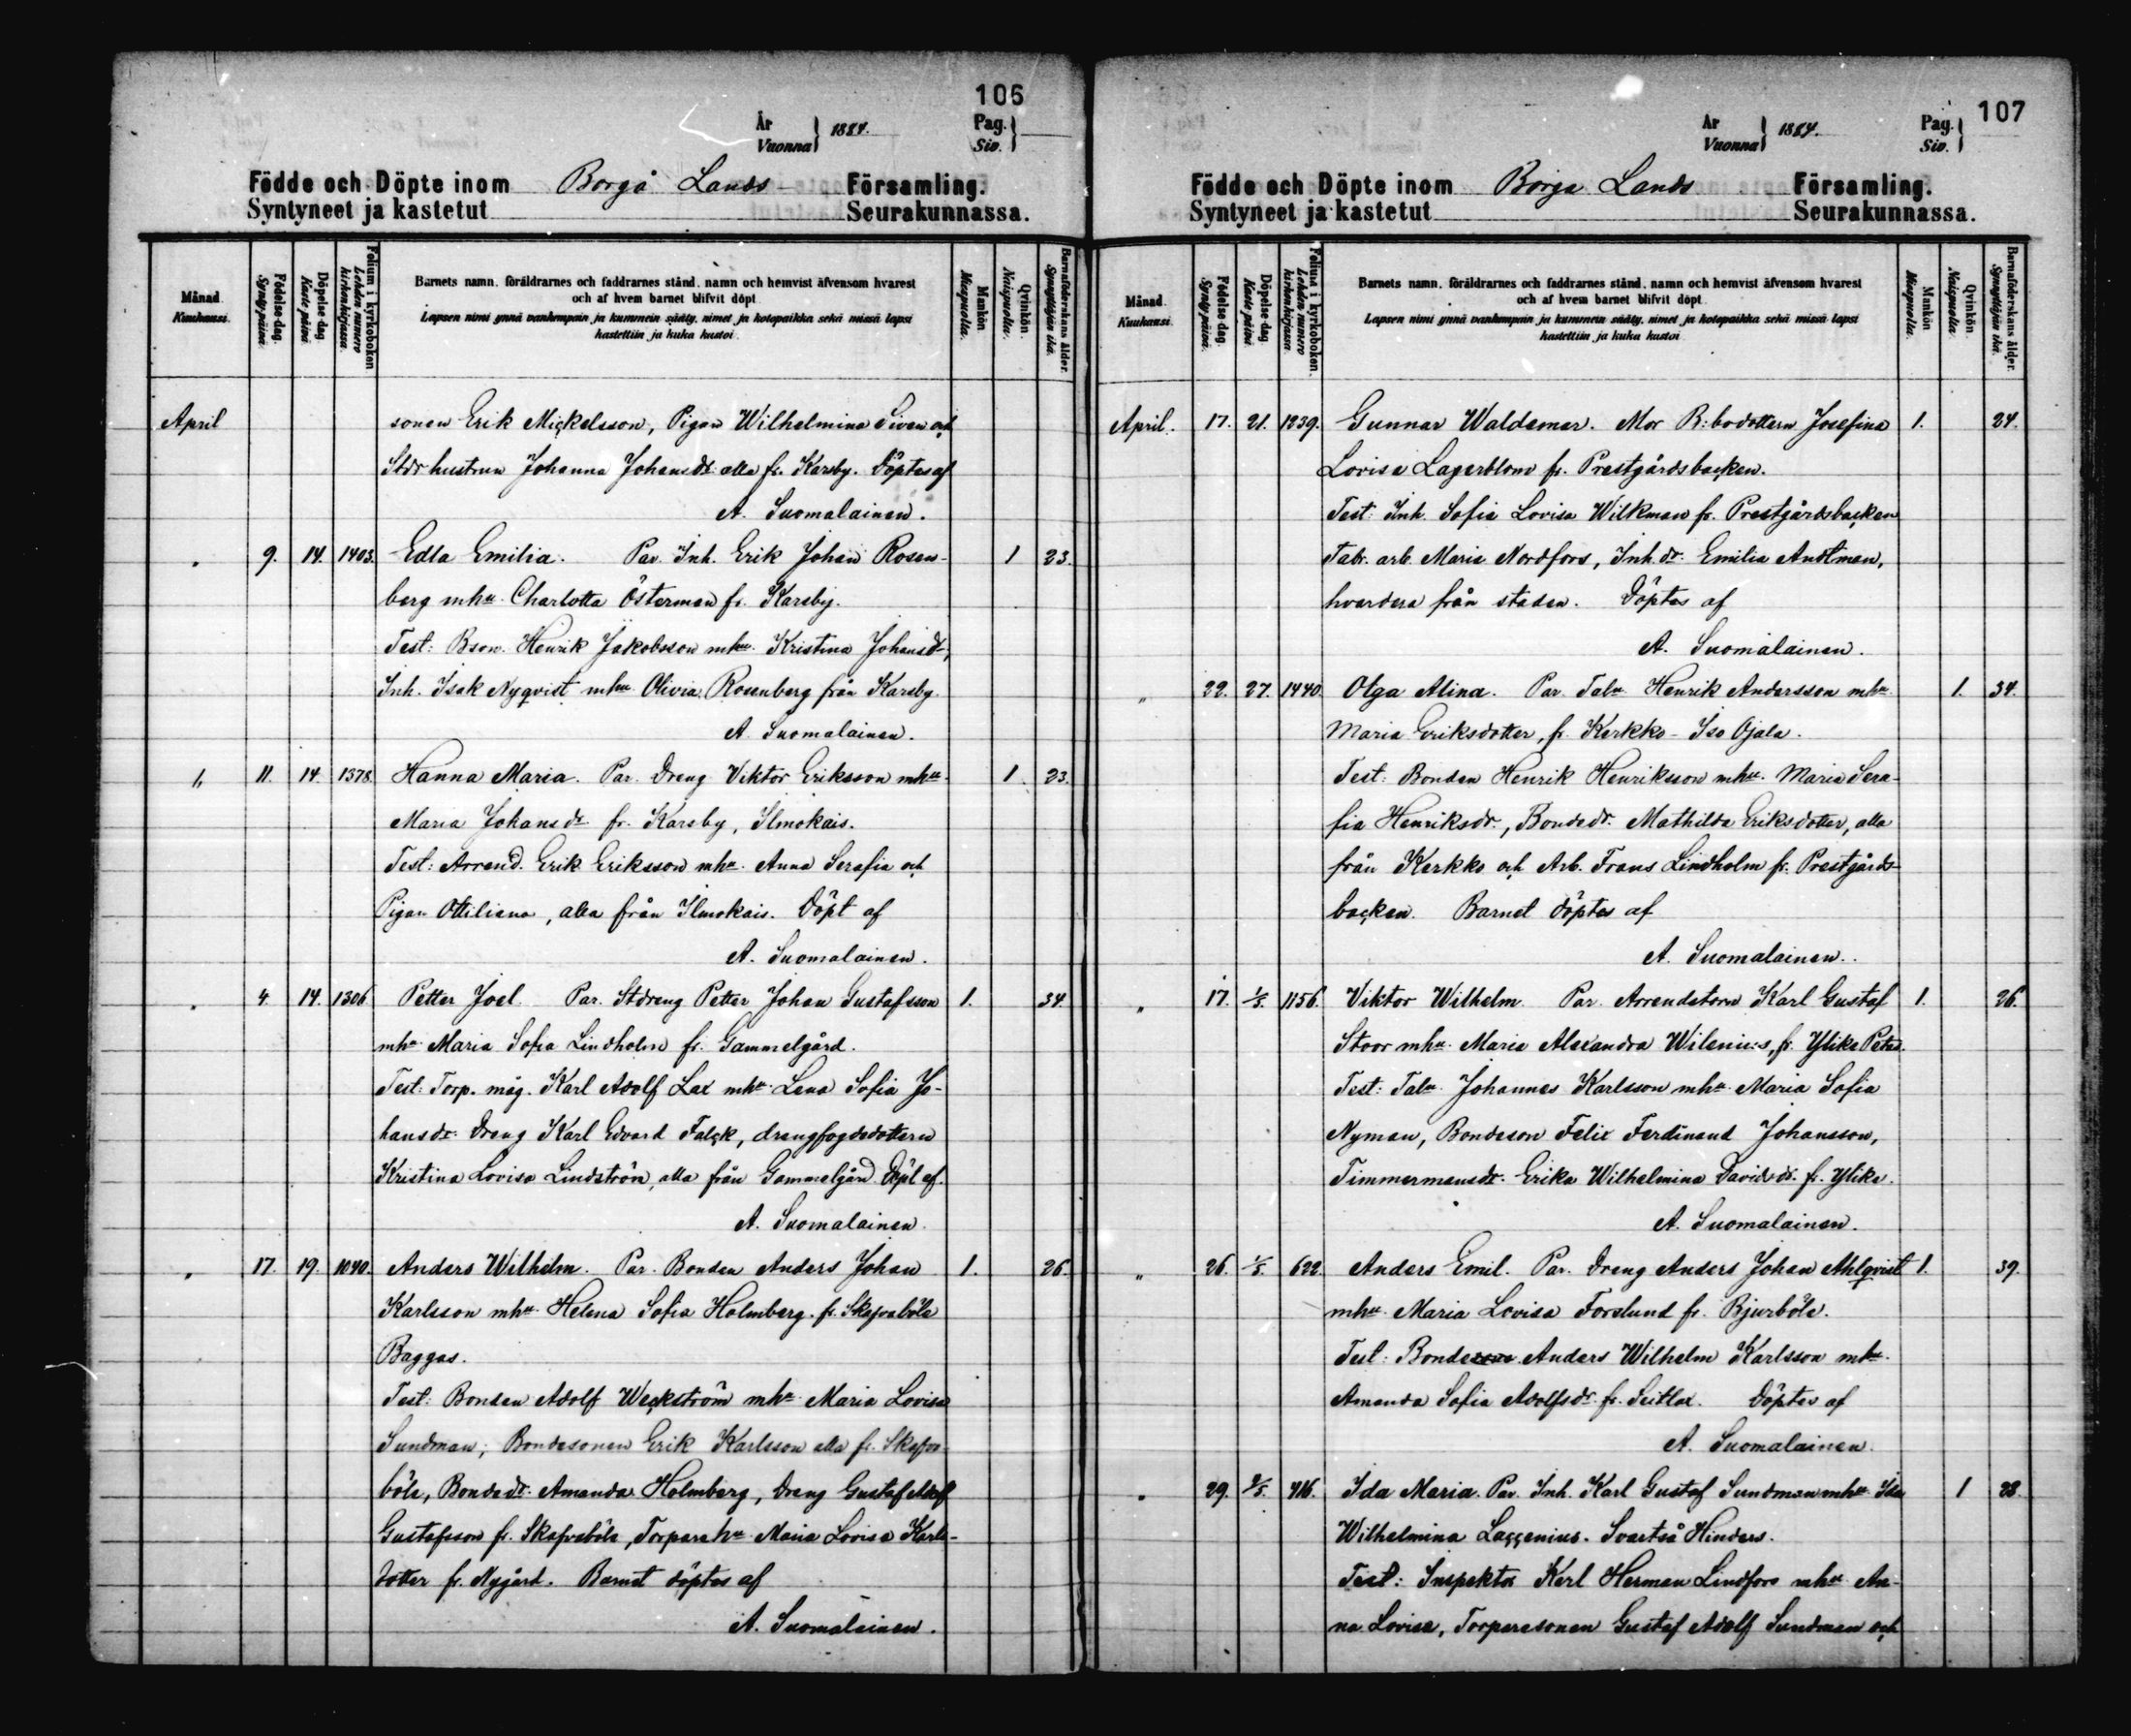 106
År
Vuonna
1884.
Pag.
Siv.
Födde och Döpte inom Borgå Lands Församling.
Syntyneet ja kastetut Seurakunnassa.
Månad.
Kuukausi.
Födelse-dag.
Syntypäivä.
Döpelse-dag.
Kaste päivä.
Folium i kyrkoboken
Lehden numero kirkonkirjassa.
Barnets namn, föräldrarnes och faddrarnes stånd, namn och hemvist äfvensom hvarest
och af hvem barnet blifvit döpt.
Lapsen nimi ynnä vanhempain ja kummein sääty, nimet ja kotopaikka sekä missä lapsi
kastettiin ja kuka kastoi.
Mankön
Miespuolia.
Qvinkön.
Naispuolia.
Barnaföderskans ålder.
Synnyttäjän ikä.
April sonen Erik Mickelsson, Pigan Wilhelmina Siven och
Stdr hustrun Johanna Johansdr alla fr. Karsby. Döptes af
A. Suomalainen.
" 9. 14. 1403. Edla Emilia. Par. Inh. Erik Johan Rosen- 1 23.
berg mhu Charlotta Österman fr. Karsby.
Test: Bson. Henrik Jakobsson mhu. Kristina Johansdr,
Inh. Isak Nyqvist mhu Olivia Rosenberg från Karsby.
A. Suomalainen.
" 11. 14. 1378. Hanna Maria. Par. Dreng Viktor Eriksson mhu. 1 23.
Maria Johansdr fr. Karsby, Ilmokais.
Test: Arrend. Erik Eriksson mhu. Anna Serafia och
Pigan Ottiliana, alla från Ilmokais. Döpt af
A. Suomalainen.
" 4. 14. 1306. Petter Joel. Par. Stdreng Petter Johan Gustafsson 1. 34.
mhu Maria Sofia Lindholm fr. Gammelgård.
Test: Torp. måg. Karl Adolf Lax mhu Lena Sofia Jo-
hansdr Dreng Karl Edvard Falck, drengfogdedottern
Kristina Lovisa Lindström, alla från Gammelgård. Döpt af.
A. Suomalainen.
" 17. 19. 1040. Anders Wilhelm. Par. Bonden Anders Johan 1. 26.
Karlsson mhu Helena Sofia Holmberg. fr. Skafvaböle
Baggas.
Test: Bonden Adolf Weckström mhu Maria Lovisa
Sundman, Bondesonen Erik Karlsson alla fr. Skafva-
böle, Bondedr. Amanda Holmberg, Dreng Gustaf Adolf
Gustafsson fr. Skafvaböle, Torparehu Maria Lovisa Karls-
dotter fr. Nygård. Barnet döptes af
A. Suomalainen.
107
År
Vuonna
1884.
Pag.
Siv.
Födde och Döpte inom Borgå Lands Församling.
Syntyneet ja kastetut Seurakunnassa.
Månad.
Kuukausi.
Födelse-dag.
Syntypäivä.
Döpelse-dag.
Kaste päivä.
Folium i kyrkoboken.
Lehden numero kirkonkirjassa.
Barnets namn, föräldrarnes och faddrarnes stånd, namn och hemvist äfvensom hvarest
och af hvem barnet blifvit döpt.
Lapsen nimi ynnä vanhempain ja kummein sääty, nimet ja kotopaikka sekä missä lapsi
kastettiin ja kuka kastoi.
Mankön
Miespuolia.
Qvinkön.
Naispuolia.
Barnaföderskans ålder.
Synnyttäjän ikä.
April. 17. 21. 1239. Gunnar Waldemar. Mor B:bodottern Josefina 1. 24.
Lovisa Lagerblom fr. Prestgårdsbacken.
Test: Inh. Sofia Lovisa Wilkman fr. Prestgårdsbacken
Fabr. arb. Maria Nordfors, Inh. dr. Emilia Andtman,
hvardera från staden. Döptes af
A. Suomalainen.
" 22. 27. 1440. Olga Alina. Par. Talu Henrik Andersson mhu 1. 34.
Maria Eriksdotter, fr. Kerkko - Iso Ojala.
Test: Bonden Henrik Henriksson mhu. Maria Sera-
fia Henriksdr., Bondedr. Mathilda Eriksdotter, alla
från Kerkko och Arb. Frans Lindholm fr. Prestgårds-
backen. Barnet döptes af
A. Suomalainen.
" 17. 1/5. 1156. Viktor Wilhelm. Par. Arrendatorn Karl Gustaf 1. 26.
Stoor mhu. Maria Alexandra Wilenius, fr. Ylike Petas.
Test: Talu Johannes Karlsson mhu Maria Sofia
Nyman, Bondeson Felix Ferdinand Johansson,
Timmermansdr. Erika Wilhelmina Davidsdr. fr. Ylike.
A. Suomalainen.
" 26. 1/5. 622. Anders Emil. Par. Dreng Anders Johan Ahlqvist 1. 39.
mhu. Maria Lovisa Forslund fr. Bjurböle.
Test: Bonde Anders Wilhelm Karlsson mhu.
Amanda Sofia Adolfsdr. fr. Seitlax. Döptes af
A. Suomalainen.
" 29. 716. Ida Maria. Par. Inh. Karl Gustaf Sundman mhu. Ida 1 28.
Wilhelmina Laggenius. Svartså Hinders.
Test: Inspektor Karl Herman Lindfors mhu An-
na Lovisa, Torparesonen Gustaf Adolf Sundman och